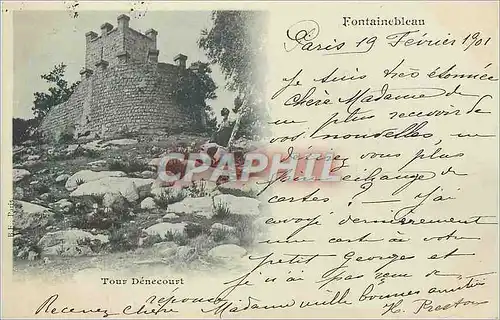 Fontainebleau
Paris 19 Février 1901
Je suis très étonnée
chère Madame de
ne pas recevoir de
vos nouvelles, ne
désirez vous plus
faire échange de
cartes ? - J'ai
envoyé dernièrement
une carte à votre
petit Georges et
je n'ai pas reçu de
réponse
Recevez chère Madame mille bonnes amitiés
H. Preston
Tour Dénecourt
B.F. Paris
CPAPHIL